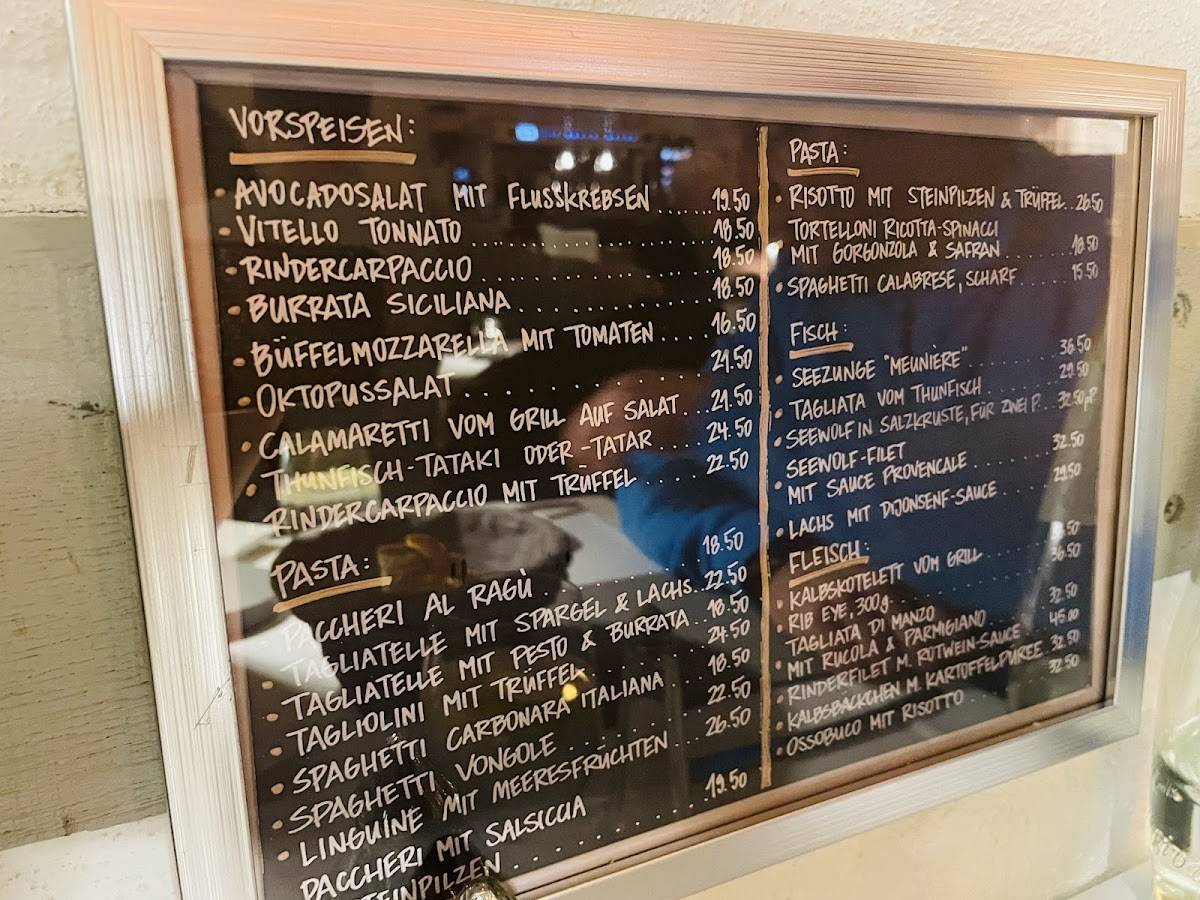 VORSPEISEN:
• AVOCADOSALAT MIT FLUSSKREBSEN ...... 19.50
• VITELLO TONNATO ...... 18.50
• RINDERCARPACCIO ...... 18.50
• BURRATA SICILIANA ...... 18.50
• BÜFFELMOZZARELLA MIT TOMATEN ..... 16.50
• OKTOPUSSALAT ...... 21.50
• CALAMARETTI VOM GRILL AUF SALAT ... 21.50
• THUNFISCH-TATAKI ODER -TATAR .... 24.50
• RINDERCARPACCIO MIT TRÜFFEL ...... 22.50
PASTA:
• PACCHERI AL RAGÙ ...... 18.50
• TAGLIATELLE MIT SPARGEL & LACHS.. 22.50
• TAGLIATELLE MIT PESTO & BURRATA . 18.50
• TAGLIOLINI MIT TRÜFFEL ...... 24.50
• SPAGHETTI CARBONARA ITALIANA .... 18.50
• SPAGHETTI VONGOLE ...... 22.50
• LINGUINE MIT MEERESFRÜCHTEN .... 26.50
PACCHERI MIT SALSICCIA
STEINPILZEN ...... 19.50
PASTA:
• RISOTTO MIT STEINPILZEN & TRÜFFEL.. 26.50
TORTELLONI RICOTTA-SPINACI
• MIT GORGONZOLA & SAFRAN ...... 18.50
• SPAGHETTI CALABRESE, SCHARF ...... 15.50
FISCH:
• SEEZUNGE "MEUNIÈRE" ...... 36.50
• TAGLIATA VOM THUNFISCH ...... 29.50
• SEEWOLF IN SALZKRUSTE, FÜR ZWEI P... 32.50 pP
• SEEWOLF-FILET
MIT SAUCE PROVENCALE ...... 32.50
• LACHS MIT DIJONSENF-SAUCE ...... 29.50
FLEISCH:
• KALBSKOTELETT VOM GRILL .50
• RIB EYE, 300g ...... 36.50
• TAGLIATA DI MANZO
MIT RUCOLA & PARMIGIANO 32.50
• RINDERFILET M. ROTWEIN-SAUCE 45.00
• KALBSBÄCKCHEN M. KARTOFFELPÜREE 32.50
• OSSOBUCO MIT RISOTTO ..... 32.50